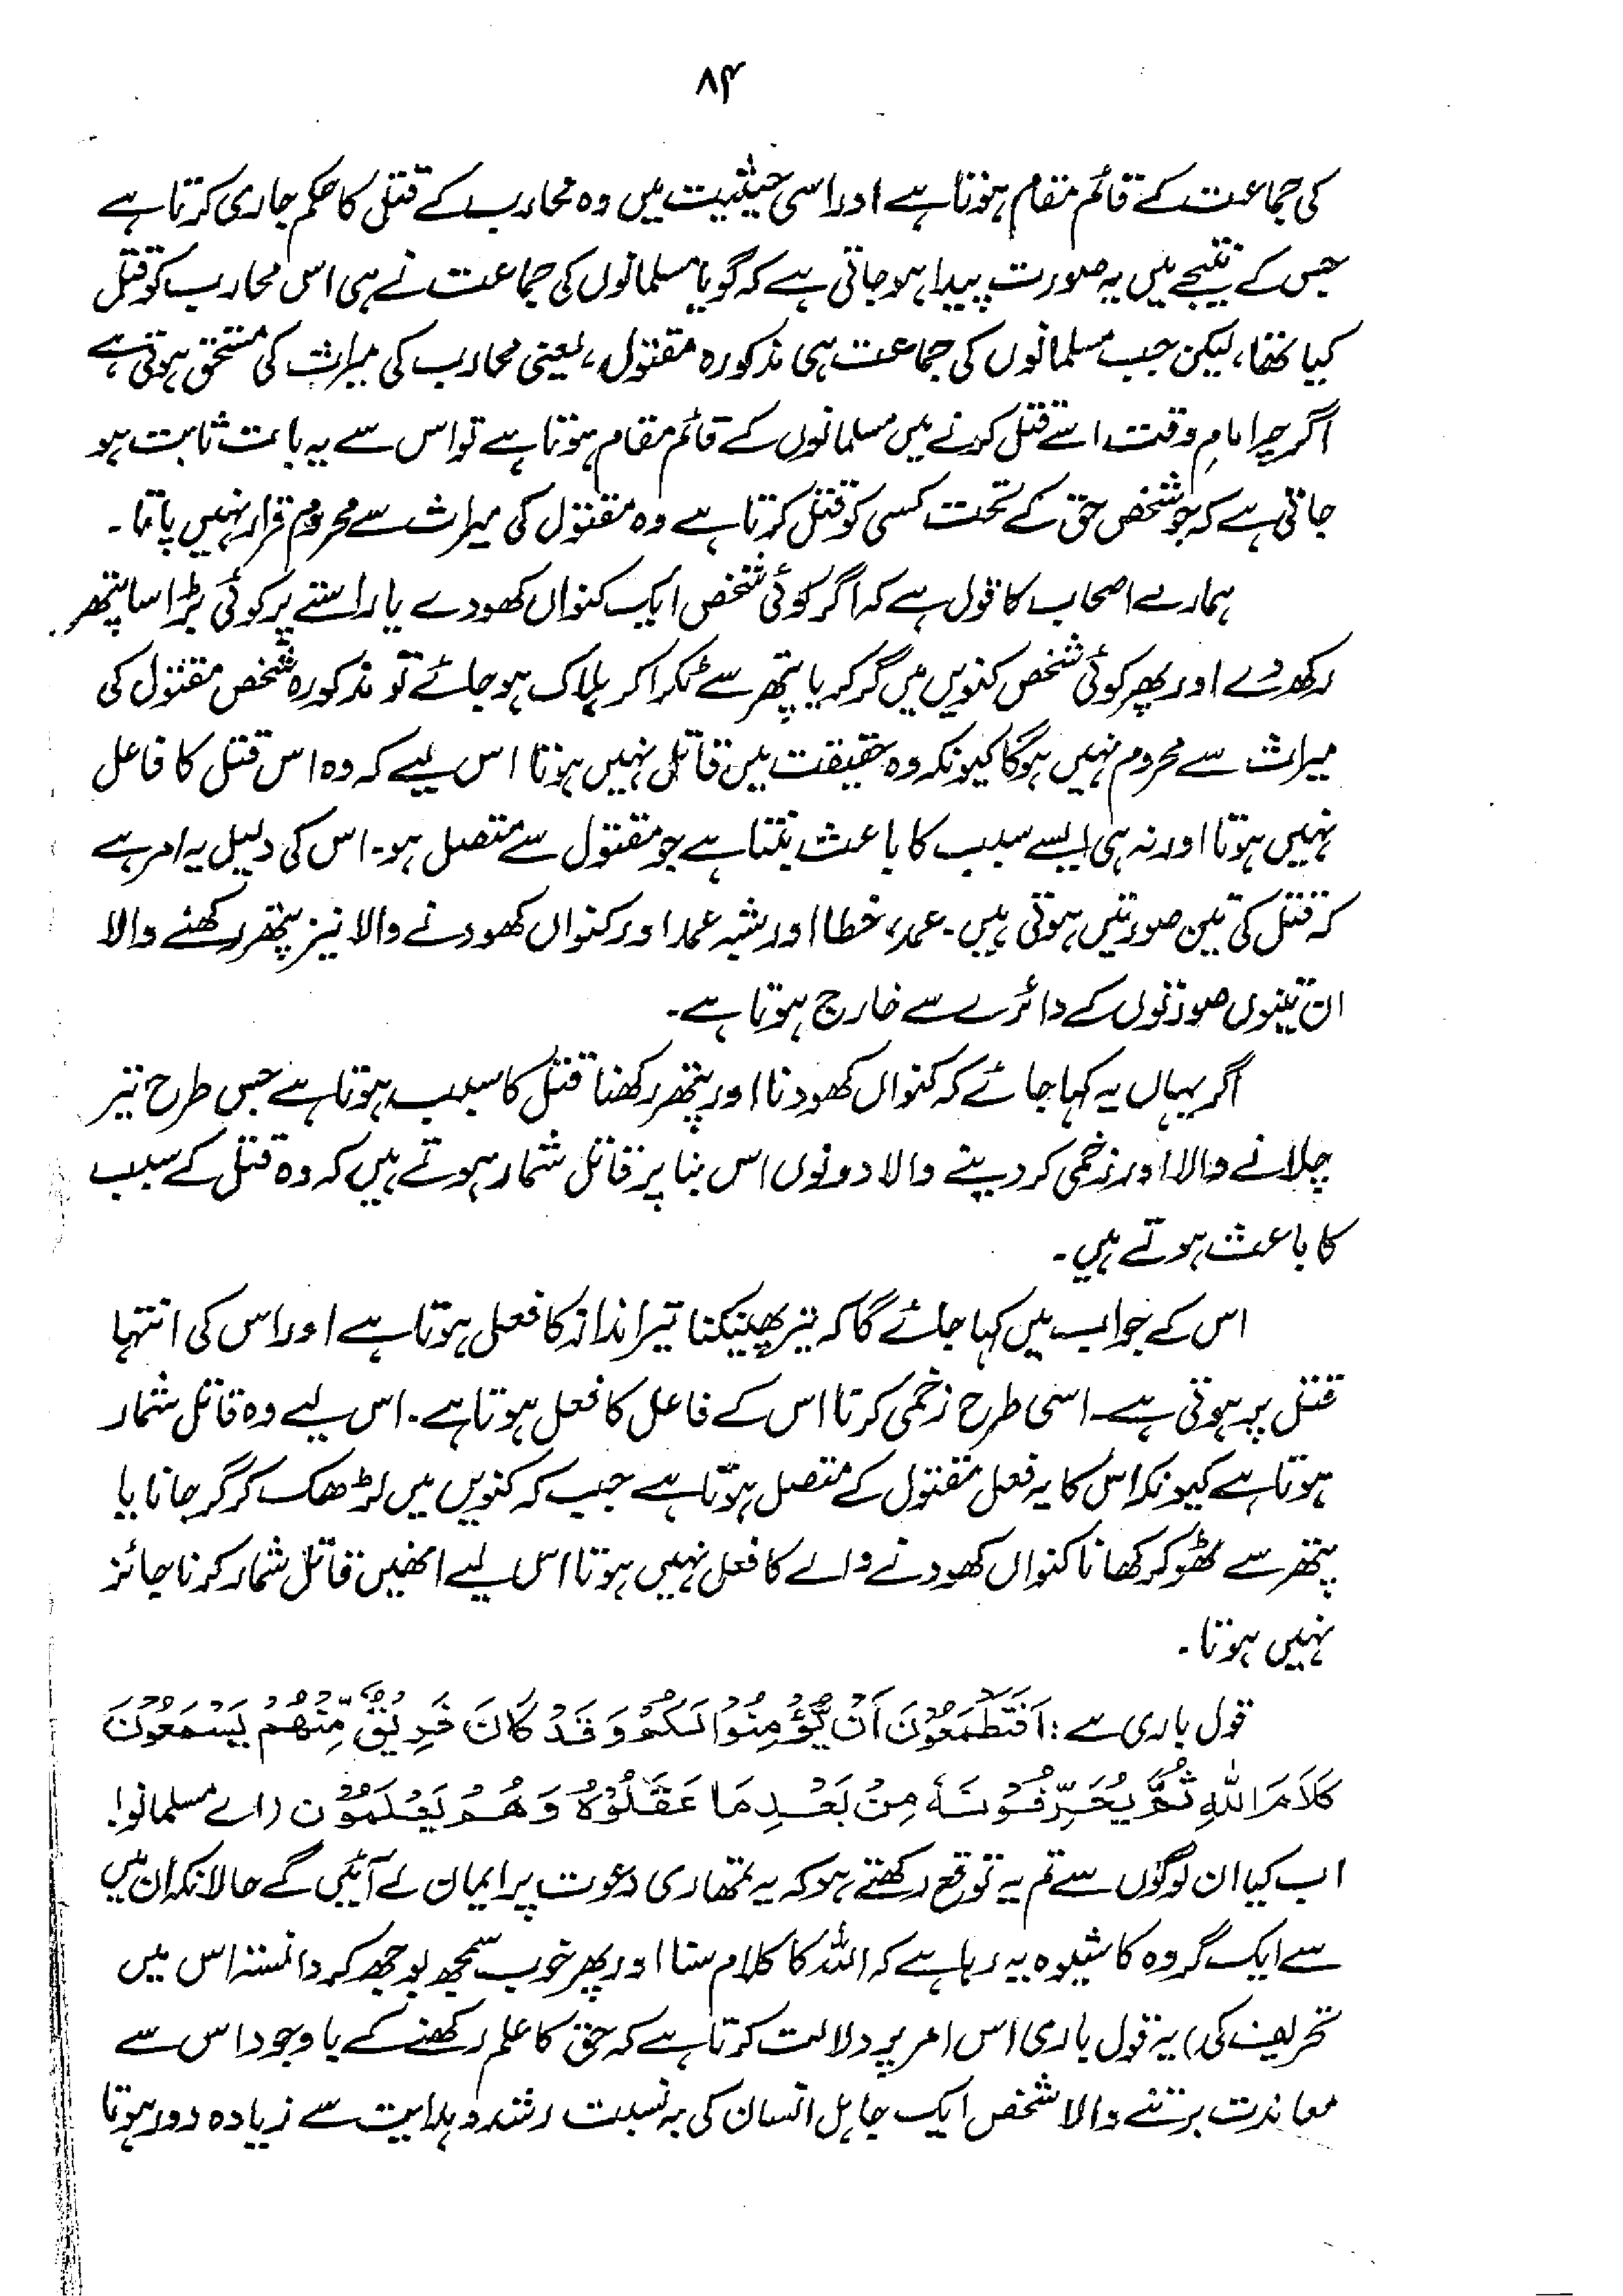 ۸۴
کی جماعت کے قائم مقام ہوتا ہے اور اسی حیثیت میں وہ محارب کے قتل کا حکم جاری کرتا ہے
جس کے نتیجے میں یہ صورت پیدا ہو جاتی ہے کہ گویا مسلمانوں کی جماعت نے ہی اس محارب کو قتل
کیا تھا، لیکن جب مسلمانوں کی جماعت ہی مذکورہ مقتول، یعنی محارب کی میراث کی مستحق ہوتی ہے
اگرچہ امامِ وقت اسے قتل کرنے میں مسلمانوں کے قائم مقام ہوتا ہے تو اس سے یہ بات ثابت ہو
جاتی ہے کہ جو شخص حق کے تحت کسی کو قتل کرتا ہے وہ مقتول کی میراث سے محروم قرار نہیں پاتا۔
ہمارے اصحاب کا قول ہے کہ اگر کوئی شخص ایک کنواں کھودے یا راستے پر کوئی بڑا سا پتھر
رکھ دے اور پھر کوئی شخص کنویں میں گر کر یا پتھر سے ٹکرا کر ہلاک ہو جائے تو مذکورہ شخص مقتول کی
میراث سے محروم نہیں ہوگا کیونکہ وہ حقیقت میں قاتل نہیں ہوتا اس لیے کہ وہ اس قتل کا فاعل
نہیں ہوتا اور نہ ہی ایسے سبب کا باعث بنتا ہے جو مقتول سے متصل ہو۔ اس کی دلیل یہ امر ہے
کہ قتل کی تین صورتیں ہوتی ہیں۔ عمد، خطا اور شبہ عمد اور کنواں کھودنے والا نیز پتھر رکھنے والا
ان تینوں صورتوں کے دائرے سے خارج ہوتا ہے۔
اگر یہاں یہ کہا جائے کہ کنواں کھودنا اور پتھر رکھنا قتل کا سبب ہوتا ہے جس طرح تیر
چلانے والا اور زخمی کر دینے والا دونوں اس بنا پر قاتل شمار ہوتے ہیں کہ وہ قتل کے سبب
کا باعث ہوتے ہیں۔
اس کے جواب میں کہا جائے گا کہ تیر پھینکنا تیر انداز کا فعل ہوتا ہے اور اس کی انتہا
قتل پر ہوتی ہے۔ اسی طرح زخمی کرنا اس کے فاعل کا فعل ہوتا ہے۔ اس لیے وہ قاتل شمار
ہوتا ہے کیونکہ اس کا یہ فعل مقتول کے متصل ہوتا ہے جب کہ کنویں میں لڑھک کر گر جانا یا
پتھر سے ٹھوکر کھانا کنواں کھودنے والے کا فعل نہیں ہوتا اس لیے انھیں قاتل شمار کرنا جائز
نہیں ہوتا۔
قول باری ہے: اَفَتَطْمَعُوْنَ اَنْ یُّؤْمِنُوْا لَکُمْ وَقَدْ کَانَ فَرِیْقٌ مِّنْھُمْ یَسْمَعُوْنَ
کَلَامَ اللّٰہِ ثُمَّ یُحَرِّفُوْنَہٗ مِنْ بَعْدِ مَا عَقَلُوْہُ وَھُمْ یَعْلَمُوْنَ (اے مسلمانو!
اب کیا ان لوگوں سے تم یہ توقع رکھتے ہو کہ یہ تمھاری دعوت پر ایمان لے آئیں گے حالانکہ ان میں
سے ایک گروہ کا شیوہ یہ رہا ہے کہ اللہ کا کلام سنا اور پھر خوب سمجھ بوجھ کر دانستہ اس میں
تحریف کی) یہ قول باری اس امر پر دلالت کرتا ہے کہ حق کا علم رکھنے کے باوجود اس سے
معاندت برتنے والا شخص ایک جاہل انسان کی بہ نسبت رشد و ہدایت سے زیادہ دور ہوتا